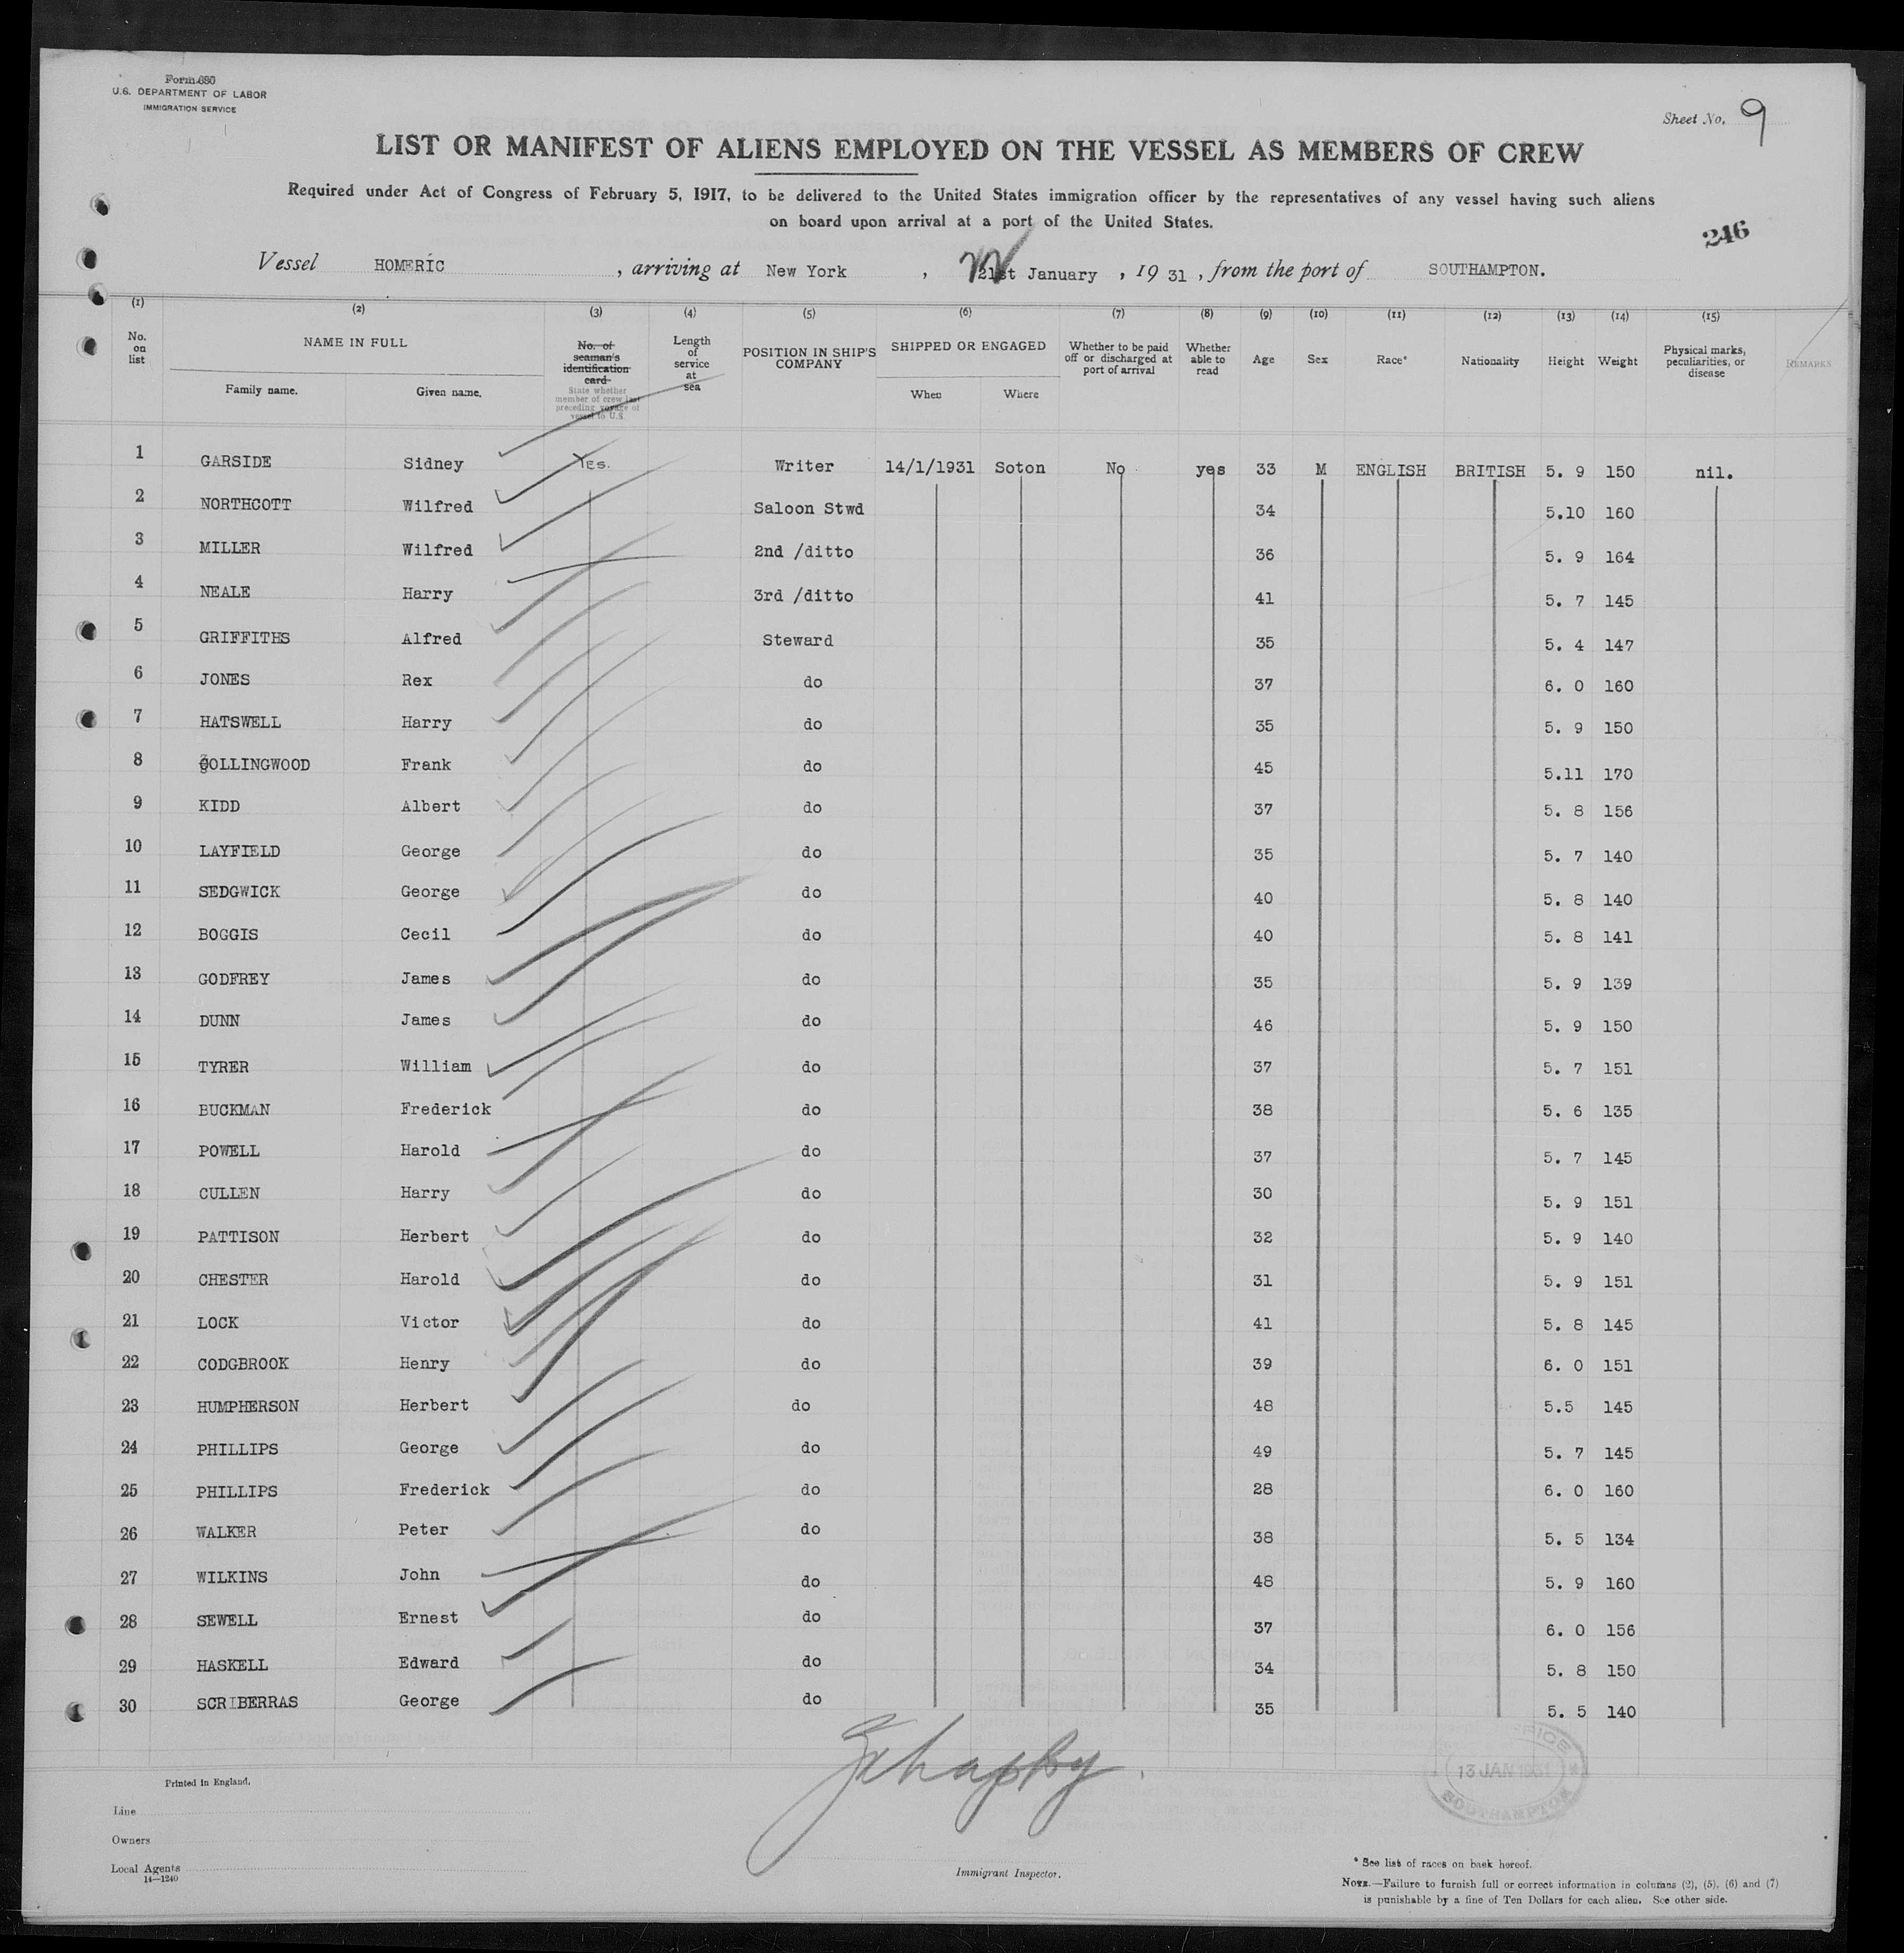 Form 680
U.S. DEPARTMENT OF LABOR
IMMIGRATION SERVICE
Sheet No. 9
LIST OR MANIFEST OF ALIENS EMPLOYED ON THE VESSEL AS MEMBERS OF CREW
Required under Act of Congress of February 5, 1917, to be delivered to the United States immigration officer by the representatives of any vessel having such aliens
on board upon arrival at a port of the United States.
246
Vessel HOMERIC , arriving at New York , 21st January , 19 31 , from the port of SOUTHAMPTON.
(1) (2) (3) (4) (5) (6) (7) (8) (9) (10) (11) (12) (13) (14) (15)
No. on list
NAME IN FULL
Family name. Given name.
No. of seaman's identification card
State whether member of crew last preceding voyage of vessel to U.S.
Length of service at sea
POSITION IN SHIP'S COMPANY
SHIPPED OR ENGAGED
When Where
Whether to be paid off or discharged at port of arrival
Whether able to read
Age Sex Race* Nationality Height Weight
Physical marks, peculiarities, or disease
REMARKS
1 GARSIDE Sidney Yes. Writer 14/1/1931 Soton No yes 33 M ENGLISH BRITISH 5. 9 150 nil.
2 NORTHCOTT Wilfred Saloon Stwd 34 5.10 160
3 MILLER Wilfred 2nd /ditto 36 5. 9 164
4 NEALE Harry 3rd /ditto 41 5. 7 145
5 GRIFFITHS Alfred Steward 35 5. 4 147
6 JONES Rex do 37 6. 0 160
7 HATSWELL Harry do 35 5. 9 150
8 GOLLINGWOOD Frank do 45 5.11 170
9 KIDD Albert do 37 5. 8 156
10 LAYFIELD George do 35 5. 7 140
11 SEDGWICK George do 40 5. 8 140
12 BOGGIS Cecil do 40 5. 8 141
13 GODFREY James do 35 5. 9 139
14 DUNN James do 46 5. 9 150
15 TYRER William do 37 5. 7 151
16 BUCKMAN Frederick do 38 5. 6 135
17 POWELL Harold do 37 5. 7 145
18 CULLEN Harry do 30 5. 9 151
19 PATTISON Herbert do 32 5. 9 140
20 CHESTER Harold do 31 5. 9 151
21 LOCK Victor do 41 5. 8 145
22 CODGBROOK Henry do 39 6. 0 151
23 HUMPHERSON Herbert do 48 5.5 145
24 PHILLIPS George do 49 5. 7 145
25 PHILLIPS Frederick do 28 6. 0 160
26 WALKER Peter do 38 5. 5 134
27 WILKINS John do 48 5. 9 160
28 SEWELL Ernest do 37 6. 0 156
29 HASKELL Edward do 34 5. 8 150
30 SCRIBERRAS George do 35 5. 5 140
13 JAN 1931
SOUTHAMPTON
Printed in England.
Line
Owners
Local Agents
14—1240
Immigrant Inspector.
* See list of races on back hereof.
NOTE.—Failure to furnish full or correct information in columns (2), (5), (6) and (7)
is punishable by a fine of Ten Dollars for each alien. See other side.